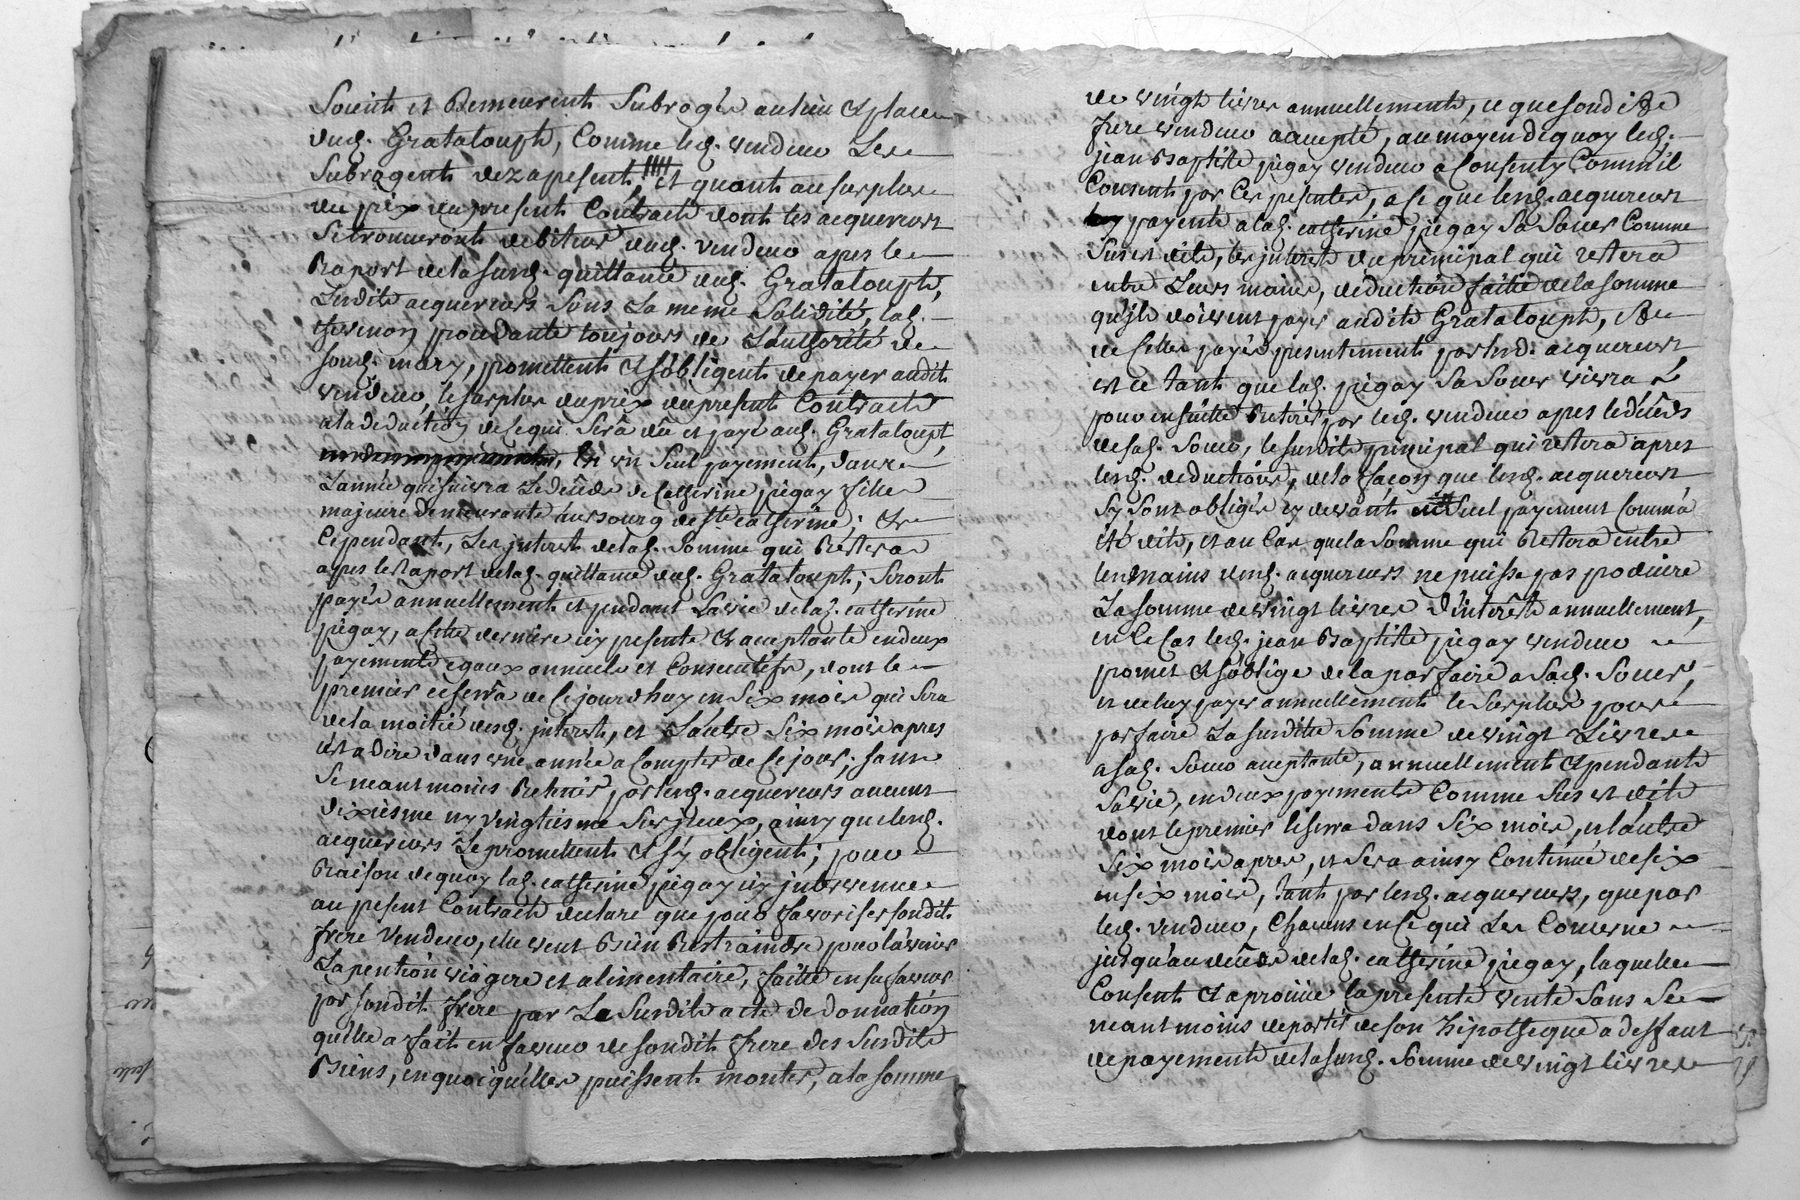 Soient et Demeurent Subrogés au lieu et place
dud. Grataloupt, Comme led. vendeur Les
Subrogent dez apresent et quant au surplus
du prix du present Contract dont les acquereurs
Se trouveront debiteurs dud. vendeur apres le
Raport de lasusd. quittance dud. Grataloupt,
Lesdits acquereurs Sous La meme Solidité, lad.
thevenon procedante toujours de L'authorité de
sond. mary, promettent et s'obligent de payer audit
vendeur, le surplus du prix du present Contract
a la deduction de ce qui Sera dû et payé aud. Grataloupt,
en un Seul payement, dans
L'année qui suivra Le décéds de Catherine piegay fille
majeure demeurante au bourg de ste catherine; et
Cependant, Les jnterests de lad. Somme qui Restera
apres le Raport de lad. quittance dud. Grataloupt; Seront
payés annuellement et pendant La vie de lad. catherine
piegay, a cette derniere icy presente et acceptante en deux
payements egaux annuels et Consecutifs, dont le
premier ce serra de ce jourdhuy en Six mois qui Sera
de la moitié desd. jnterests, et L'autre Six mois apres
c'est a dire dans une année a Compter de ce jour; sans
Se neantmoins Retenir par lesd. acquereurs aucuns
dixiesme ny vingtiesme Sur jceux, ainsy que lesd.
acquereurs Le promettent et s'y obligent; pour
Raison de quoy lad. catherine piegay icy jntervenue
au present Contract declare que pour favoriser sondit
frere vendeur, elle veut Bien Restraindre pour l'avenir
La pention viagere et alimentaire, faitte en sa faveur
par sondit frere par La Susdite acte de donnation
qu'elle a fait en faveur de sondit frere des Susdits
Biens, en quoi qu'elles puissent monter, a la somme
de vingt livres annuellement, ce que sondit
frere vendeur accepte, au moyen de quoy led.
jean Baptiste piegay vendeur a Consenty Comme il
Consent par Ces presentes, a ce que lesd. acquereurs
payent a lad. catherine piegay Sa Soeur Comme
Sus est dit, les jnterests du principal qui restera
entre Leurs mains, deduction faitte de la somme
qu'jls doivent payer audit Grataloupt, et
de Celle payée presentement par lesd. acquereurs
et ce tant que lad. piegay Sa Soeur vivra
pour ensuitte Retirer par led. vendeur apres le décéds
de sad. Soeur, le susdit principal qui restera apres
lesd. deductions, de la façon que lesd. acquereurs
s'y Sont obligés cy devant Seul payement Comme a
été dit, et au Cas que la Somme qui Restera entre
les mains desd. acquereurs ne puisse pas produire
La somme de vingt livres d'interêts annuellement,
en Ce Cas led. jean Baptiste piegay vendeur
promet et s'oblige de la parfaire a Sad. Soeur,
et de luy payer annuellement le Surplus pour
parfaire La susditte Somme de vingt Livres
a sad. Soeur acceptante, annuellement et pendante
Sa vie, en deux payements Comme Sus est dit
dont le premier Se serra dans Six mois, et l'autre
Six mois apres, et Sera ainsy Continué de six
en six mois, tant par lesd. acquereurs, que par
led. vendeur, Chacuns en ce qui Les Concerne
jusqu'au décéds de lad. catherine piegay, laquelle
Consent et aprouve la presente vente Sans Se
neantmoins departir de son hipotheque a deffaut
de payement de la susd. Somme de vingt livres